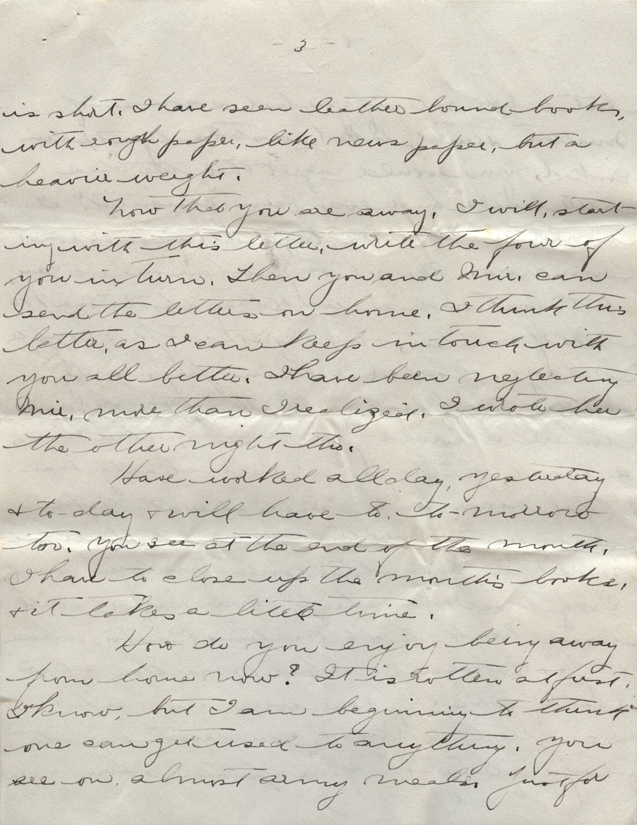 - 3 -
is short. I have seen leather bound books,
with rough paper, like news paper, but a
heavier weight.
Now that you are away, I will, start
ing with this letter, write the four of
you in turn. Then you and Mir. can
send the letters on home. I think this
better, as I can keep in touch with
you all better. I have been neglecting
Mir. more than I realized. I wrote her
the other night tho.
Have worked all day, yesterday
& to-day & will have to, to-morrow
too. You see at the end of the month,
I have to close up the months books,
& it takes a little time.
How do you enjoy being away
from home now? It is rotten at first,
I know, but I am beginning to think
one can get used to anything. You
see on almost army meals. Just for